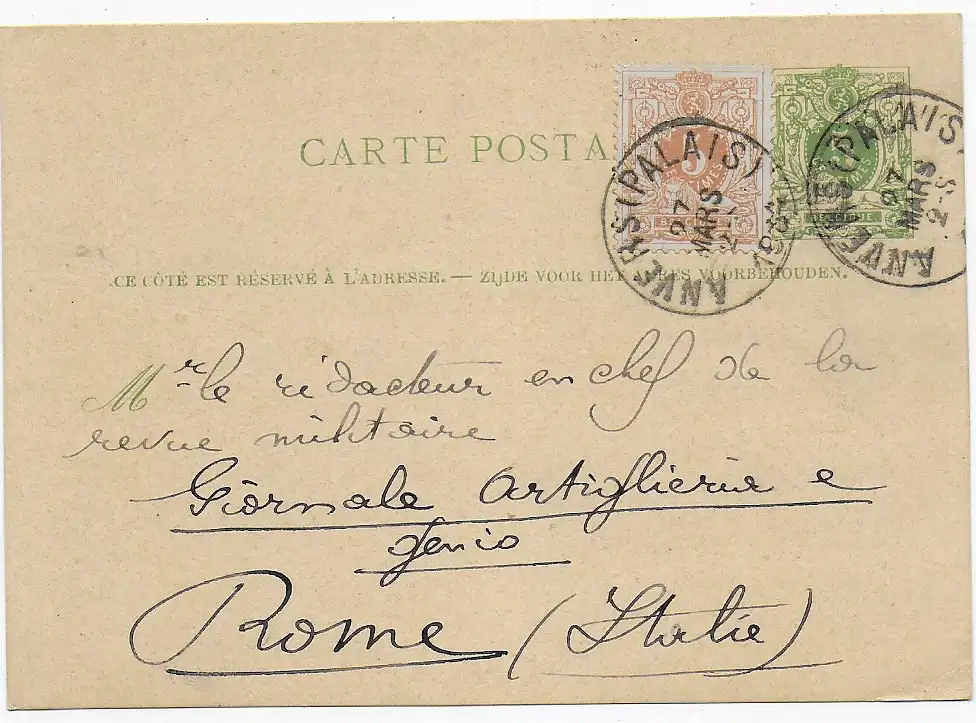 CARTE POSTA
5
CENTIMES
BELGIQUE
5
BELGIQUE
ANVERS (PALAIS)
27
MARS
ANVERS (PALAIS)
27
MARS
2-S
CE CÔTÉ EST RÉSERVÉ À L'ADRESSE. — ZIJDE VOOR HET ADRES VOORBEHOUDEN.
Mr le rédacteur en chef de la
revue militaire
Giornale Artiglieria e
genio
Rome (Italie)